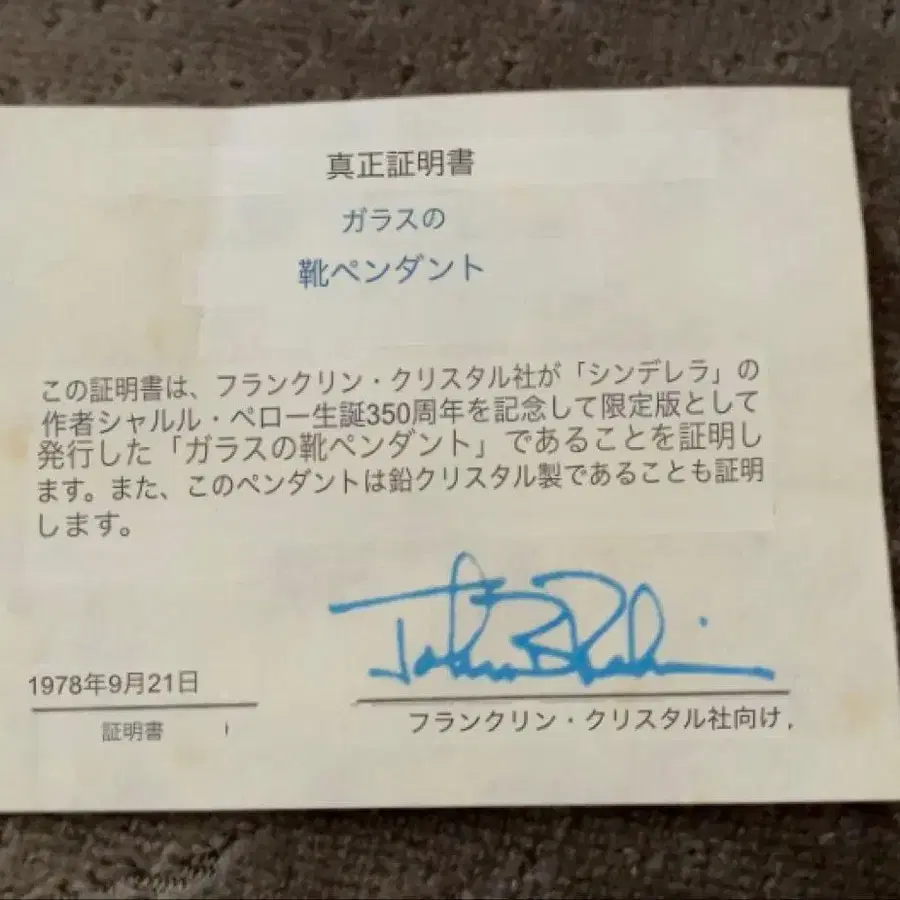 真正証明書
ガラスの
靴ペンダント
この証明書は、フランクリン・クリスタル社が「シンデレラ」の
作者シャルル・ペロー生誕350周年を記念して限定版として
発行した「ガラスの靴ペンダント」であることを証明し
ます。また、このペンダントは鉛クリスタル製であることも証明
します。
1978年9月21日
証明書
フランクリン・クリスタル社向け.